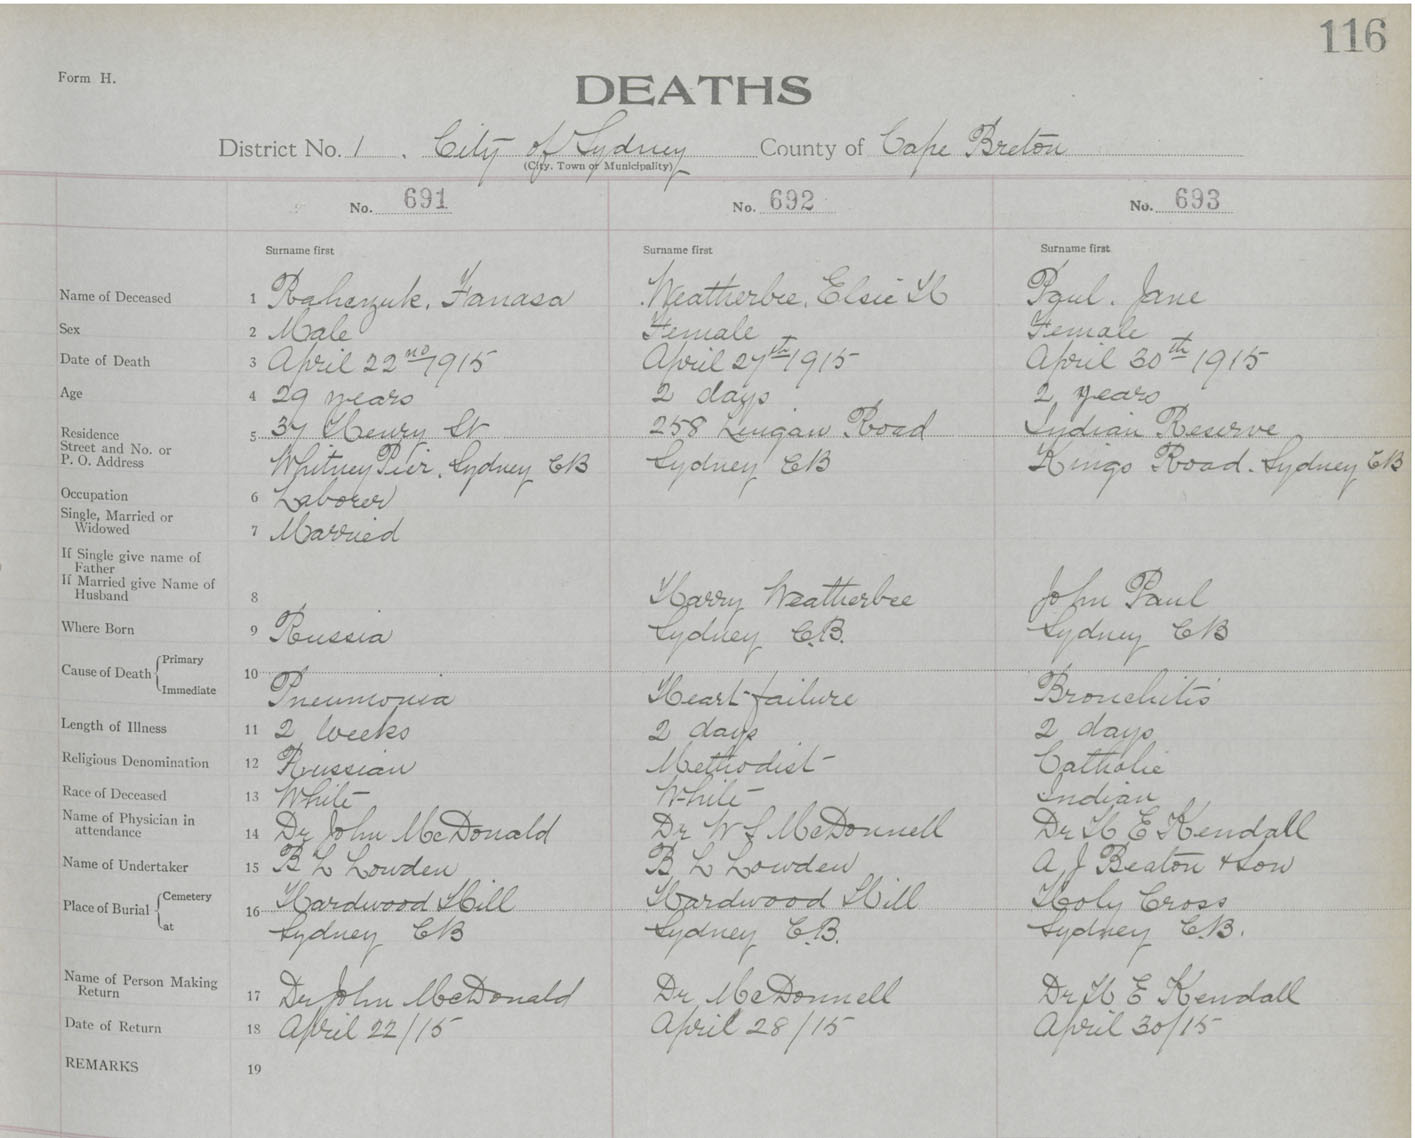 116
Form H.
DEATHS
District No. 1. City of Sydney County of Cape Breton
(City, Town or Municipality)
No. 691 No. 692 No. 693
Surname first Surname first Surname first
Name of Deceased 1 Fanasa Weatherbee, Elsie H Paul. Jane
Sex 2 Male Female Female
Date of Death 3 April 22nd 1915 April 27th 1915 April 30th 1915
Age 4 29 years 2 days 2 years
Residence 5 37 Henry St 258 Lingan Road Indian Reserve
Street and No. or
P. O. Address Whitney Pier, Sydney CB Sydney CB Kings Road. Sydney CB
Occupation 6 Laborer
Single, Married or
Widowed 7 Married
If Single give name of
Father
If Married give Name of
Husband 8 Harry Weatherbee John Paul
Where Born 9 Russia Sydney C.B. Sydney CB
Cause of Death Primary 10
Immediate Pneumonia Heart failure Bronchitis
Length of Illness 11 2 weeks 2 days 2 days
Religious Denomination 12 Russian Methodist Catholic
Race of Deceased 13 White White Indian
Name of Physician in
attendance 14 Dr John McDonald Dr W J McDonnell Dr H E Kendall
Name of Undertaker 15 B L Lowden B L Lowden A J Beaton & Son
Place of Burial Cemetery 16 Hardwood Hill Hardwood Hill Holy Cross
at Sydney CB Sydney C.B. Sydney C.B.
Name of Person Making
Return 17 Dr John McDonald Dr McDonnell Dr H E Kendall
Date of Return 18 April 22/15 April 28/15 April 30/15
REMARKS 19